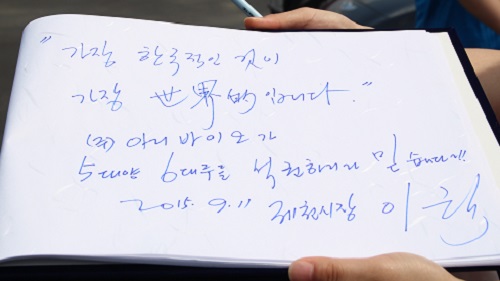 "가장 한국적인 것이
가장 世界的입니다."
(주) 아리바이오가
5대양 6대주를 석권하리라 믿습니다!!
2015. 9. 11 제천시장 이